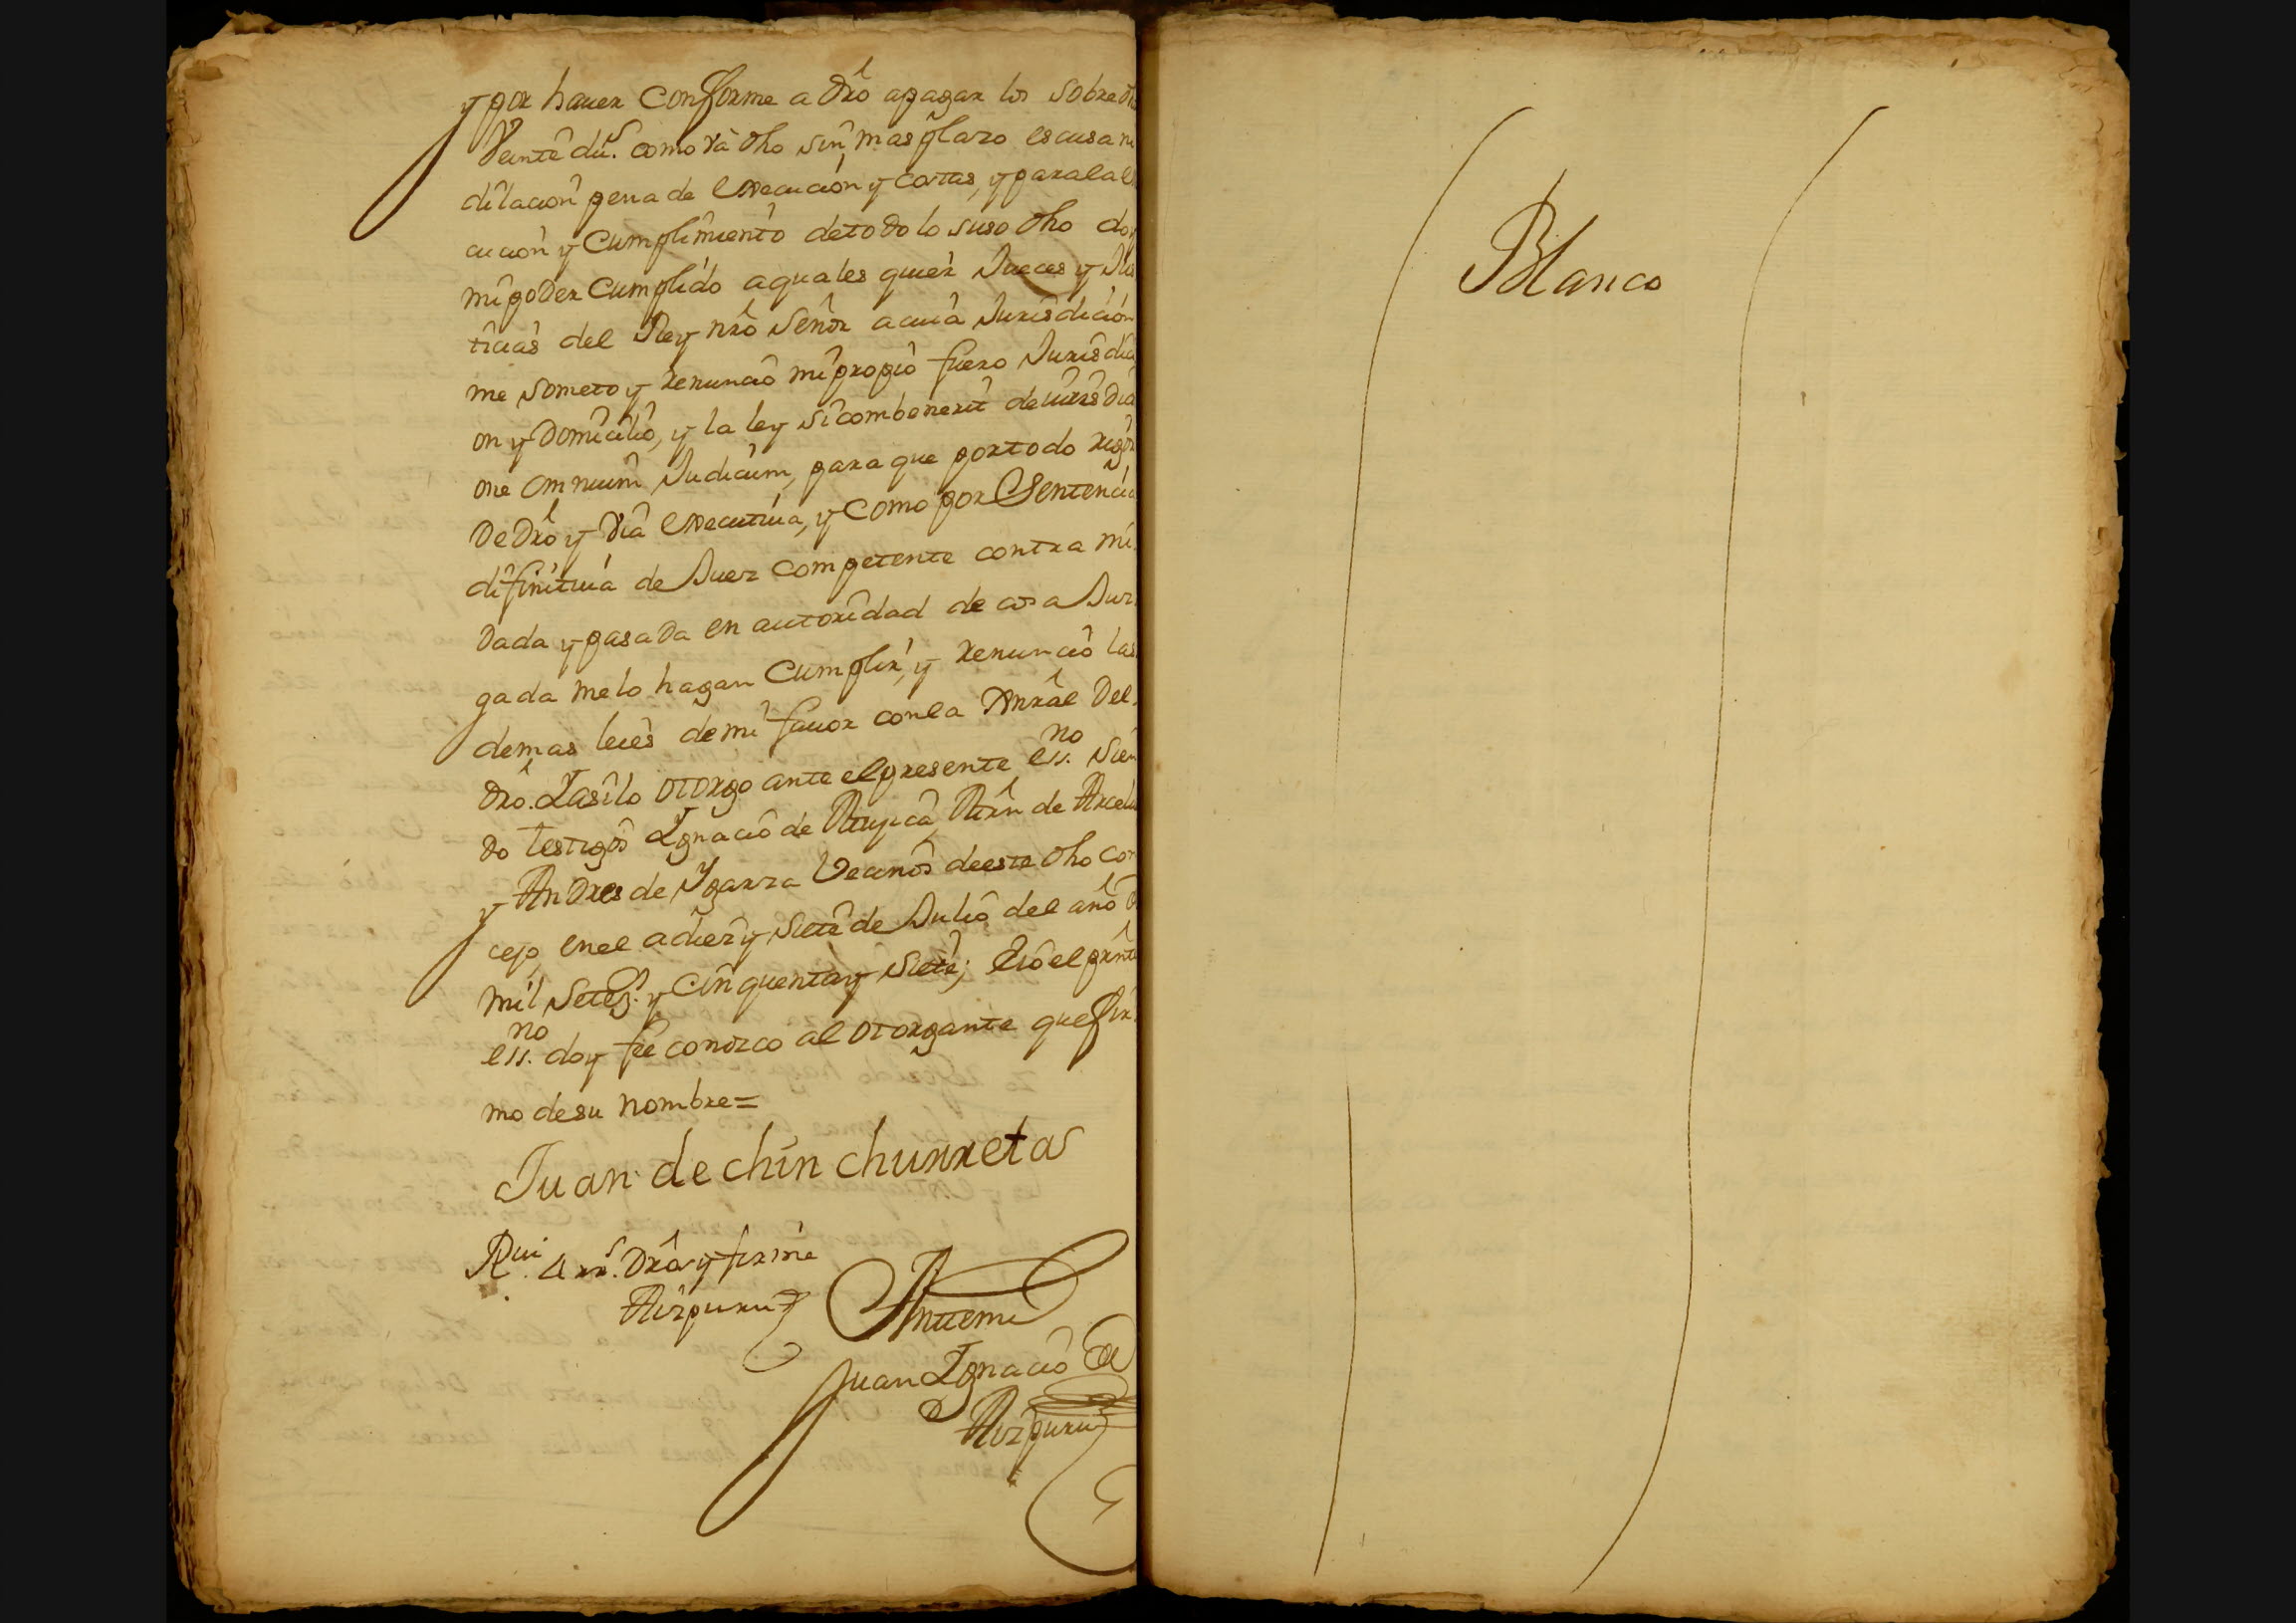 y por hauer conforme a dro apagar los sobredi
Veinte du.s como va dho sin mas plazo escusa ni
dilacion pena de execucion y costas, y parala e
cucion y cumplimiento detodo lo suso dho doy
mi poder cumplido aquales quier Jueces y Jus
ticias del Rey nro Señor a cuia Jurisdicion
me someto y renuncio mi propio fuero Jurisdici
on y Domicilio, y la ley sicombenerit de iurisdicti
one omnium Judicum, para que portodo rigor
De Dro y via executiua, y como por Sentencia
difinitiua de Juez competente contra mi
Dada y pasada en autoridad de cosa Juz
gada melo hagan cumplir, y renuncio las
demas leies demi fauor conla Gnral Del
dro. Iasilo otorgo ante elpresente ess.no Sien
do testigos Ignacio de de
y Andres de Ygarza Vecinos deeste dho con
cejo, enel adiez y siete de Julio del año d
mil setez.s y cinquentay siete; Eio elprnte
ess.no doy fee conozco al otorgante quefir
mo desu nombre=
Juan de chin churreta
Rui 4 rr.s Dra y firme
Aizpuru
Antemi
Juan Ignacio de
Aizpuru
Blanco